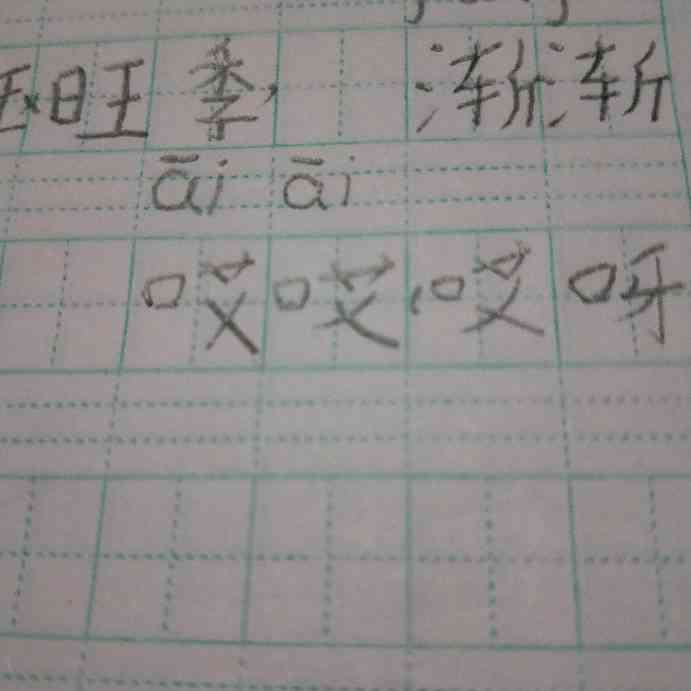 旺季, 渐渐
āi āi
哎哎,哎呀